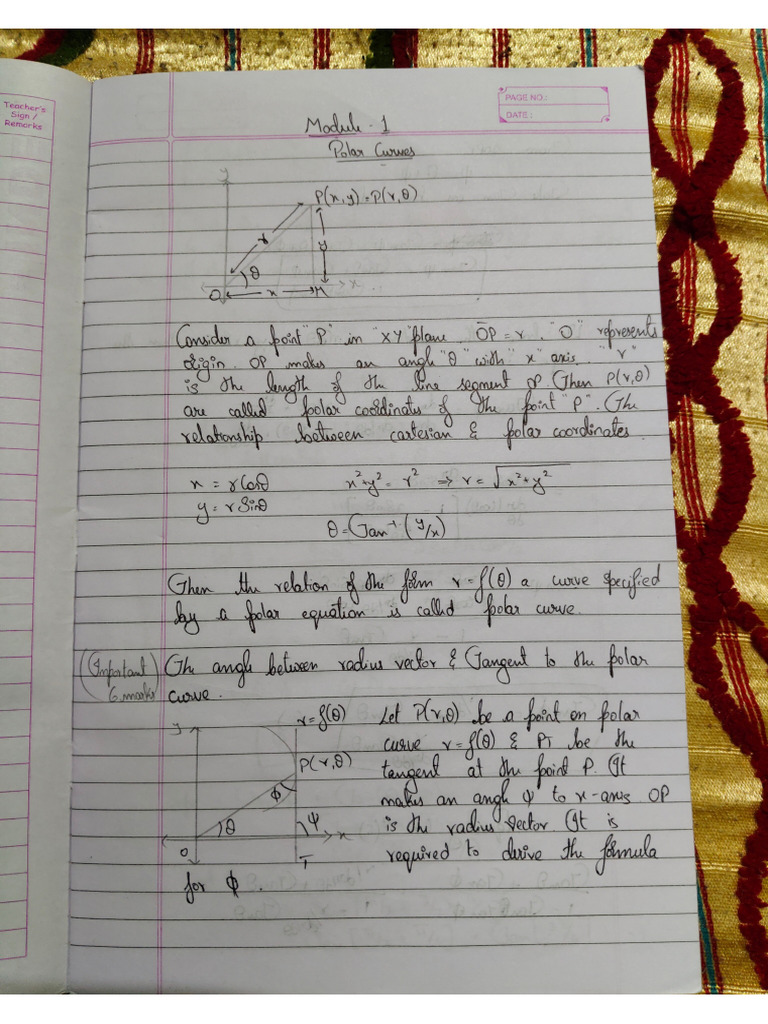 Teacher's
Sign /
Remarks
PAGE NO.:
DATE :
Module - 1
Polar Curves
y
P(x, y) = P(r, θ)
r
y
θ
O x M x
Consider a point "P" in "XY" plane. OP = r. "O" represents
origin. OP makes an angle "θ" with "x" axis. "r"
is the length of the line segment OP. Then P(r, θ)
are called polar coordinates of the point "P". The
relationship between cartesian & polar coordinates.
x = r Cosθ x² + y² = r² ⇒ r = √x² + y²
y = r Sinθ
θ = Tan⁻¹ (y/x)
Then the relation of the form r = f(θ) a curve specified
by a polar equation is called polar curve.
(Important) The angle between radius vector & Tangent to the polar
6 marks curve.
y r = f(θ) Let P(r, θ) be a point on polar
curve r = f(θ) & PT be the
P(r, θ) tangent at the point P. It
ϕ makes an angle ψ to x-axis OP
θ ψ x is the radius vector. It is
O T required to derive the formula
for ϕ.